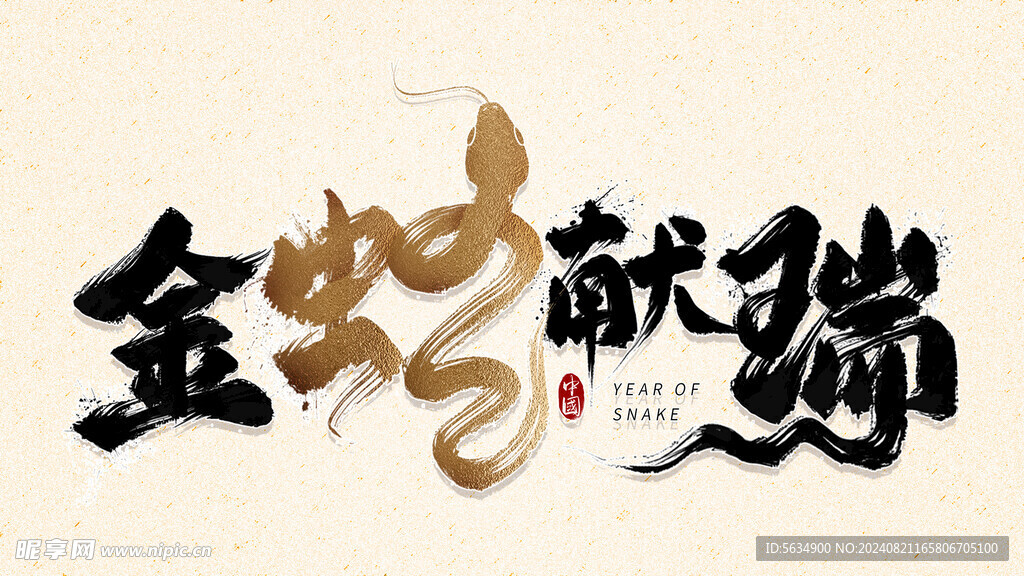 金蛇献瑞
中國
YEAR OF
SNAKE
昵享网 www.nipic.cn
ID:5634900 NO:20240821165806705100